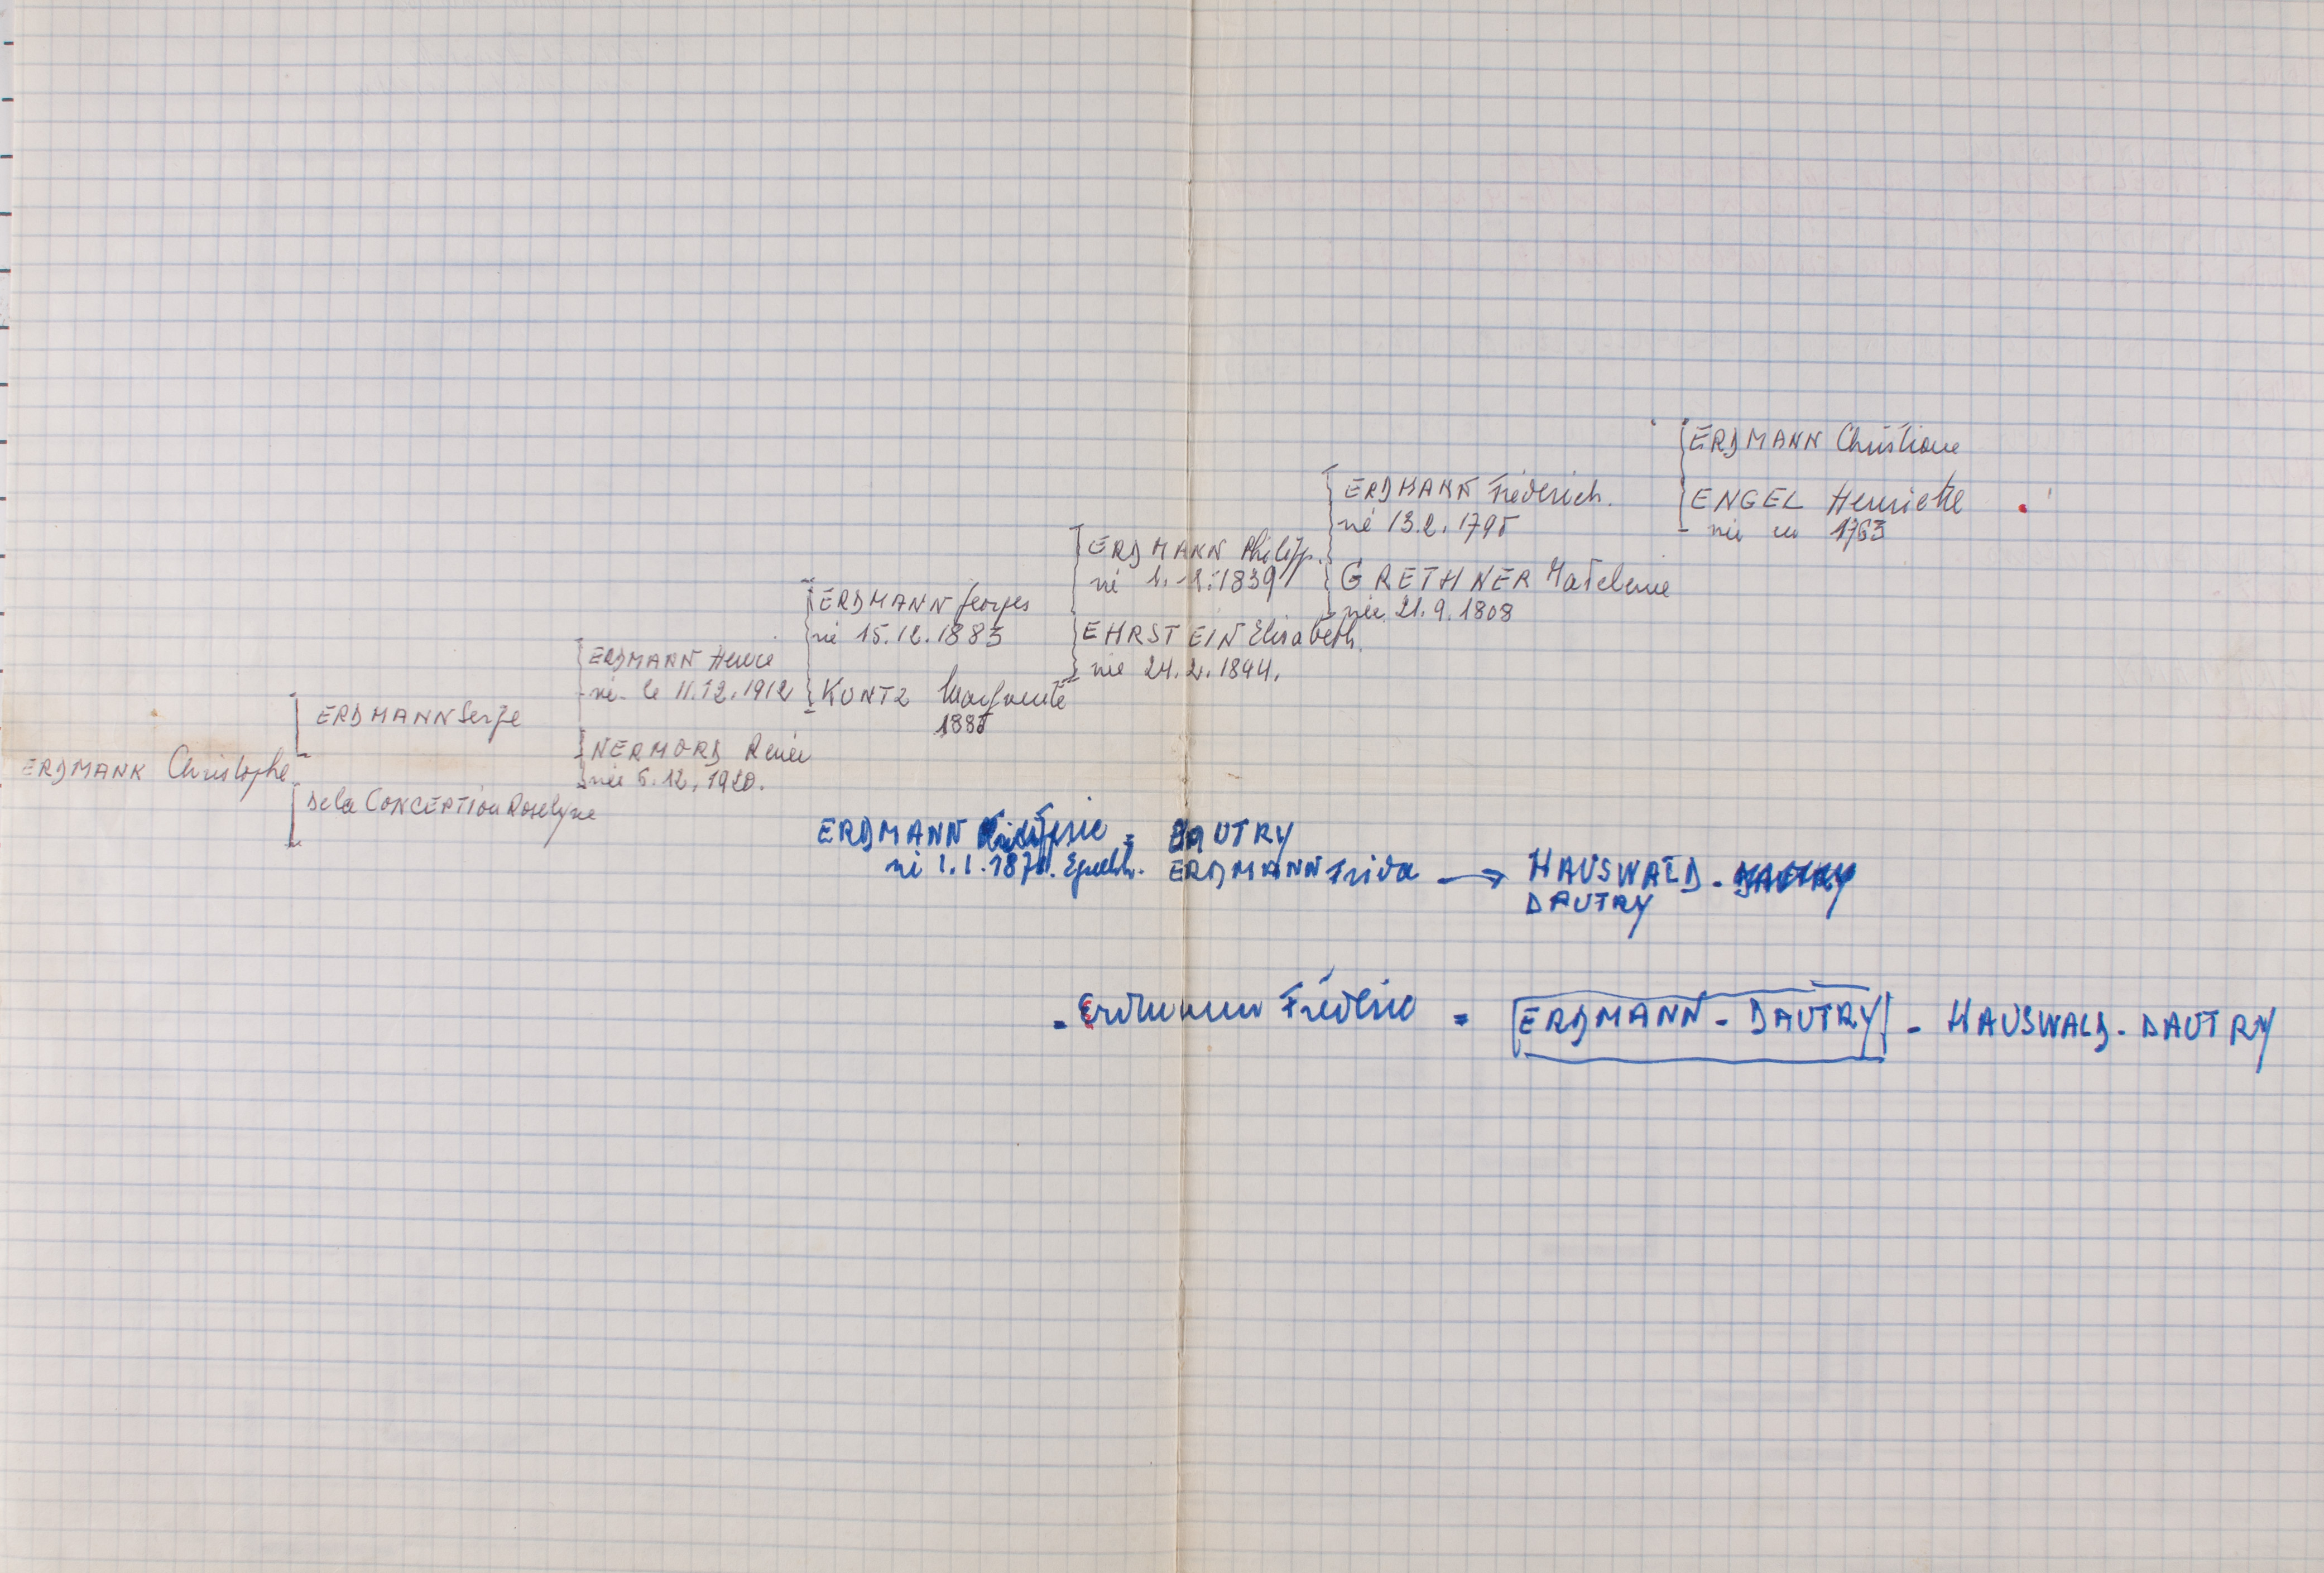 ERDMANN Christophe
ERDMANN Serge
De la CONCEPTION Roselyne
ERDMANN Henri
né le 11.12.1912
NERMORD Renée
née 5.12.1920.
ERDMANN Georges
né 15.12.1883
KUNTZ Marguerite
1885
ERDMANN Philipp.
né 1.2.1839
EHRSTEIN Elisabeth.
née 24.2.1844.
ERDMANN Fréderich.
né 13.2.1795
GRETHNER Madeleine
née 21.9.1808
ERDMANN Christiane
ENGEL Henriette
née en 1763
ERDMANN = DAUTRY
né 1.1.187 ERDMANN Frida → HAUSWALD - DAUTRY
DAUTRY
- Erdmann Fréderic = ERDMANN - DAUTRY - HAUSWALD - DAUTRY